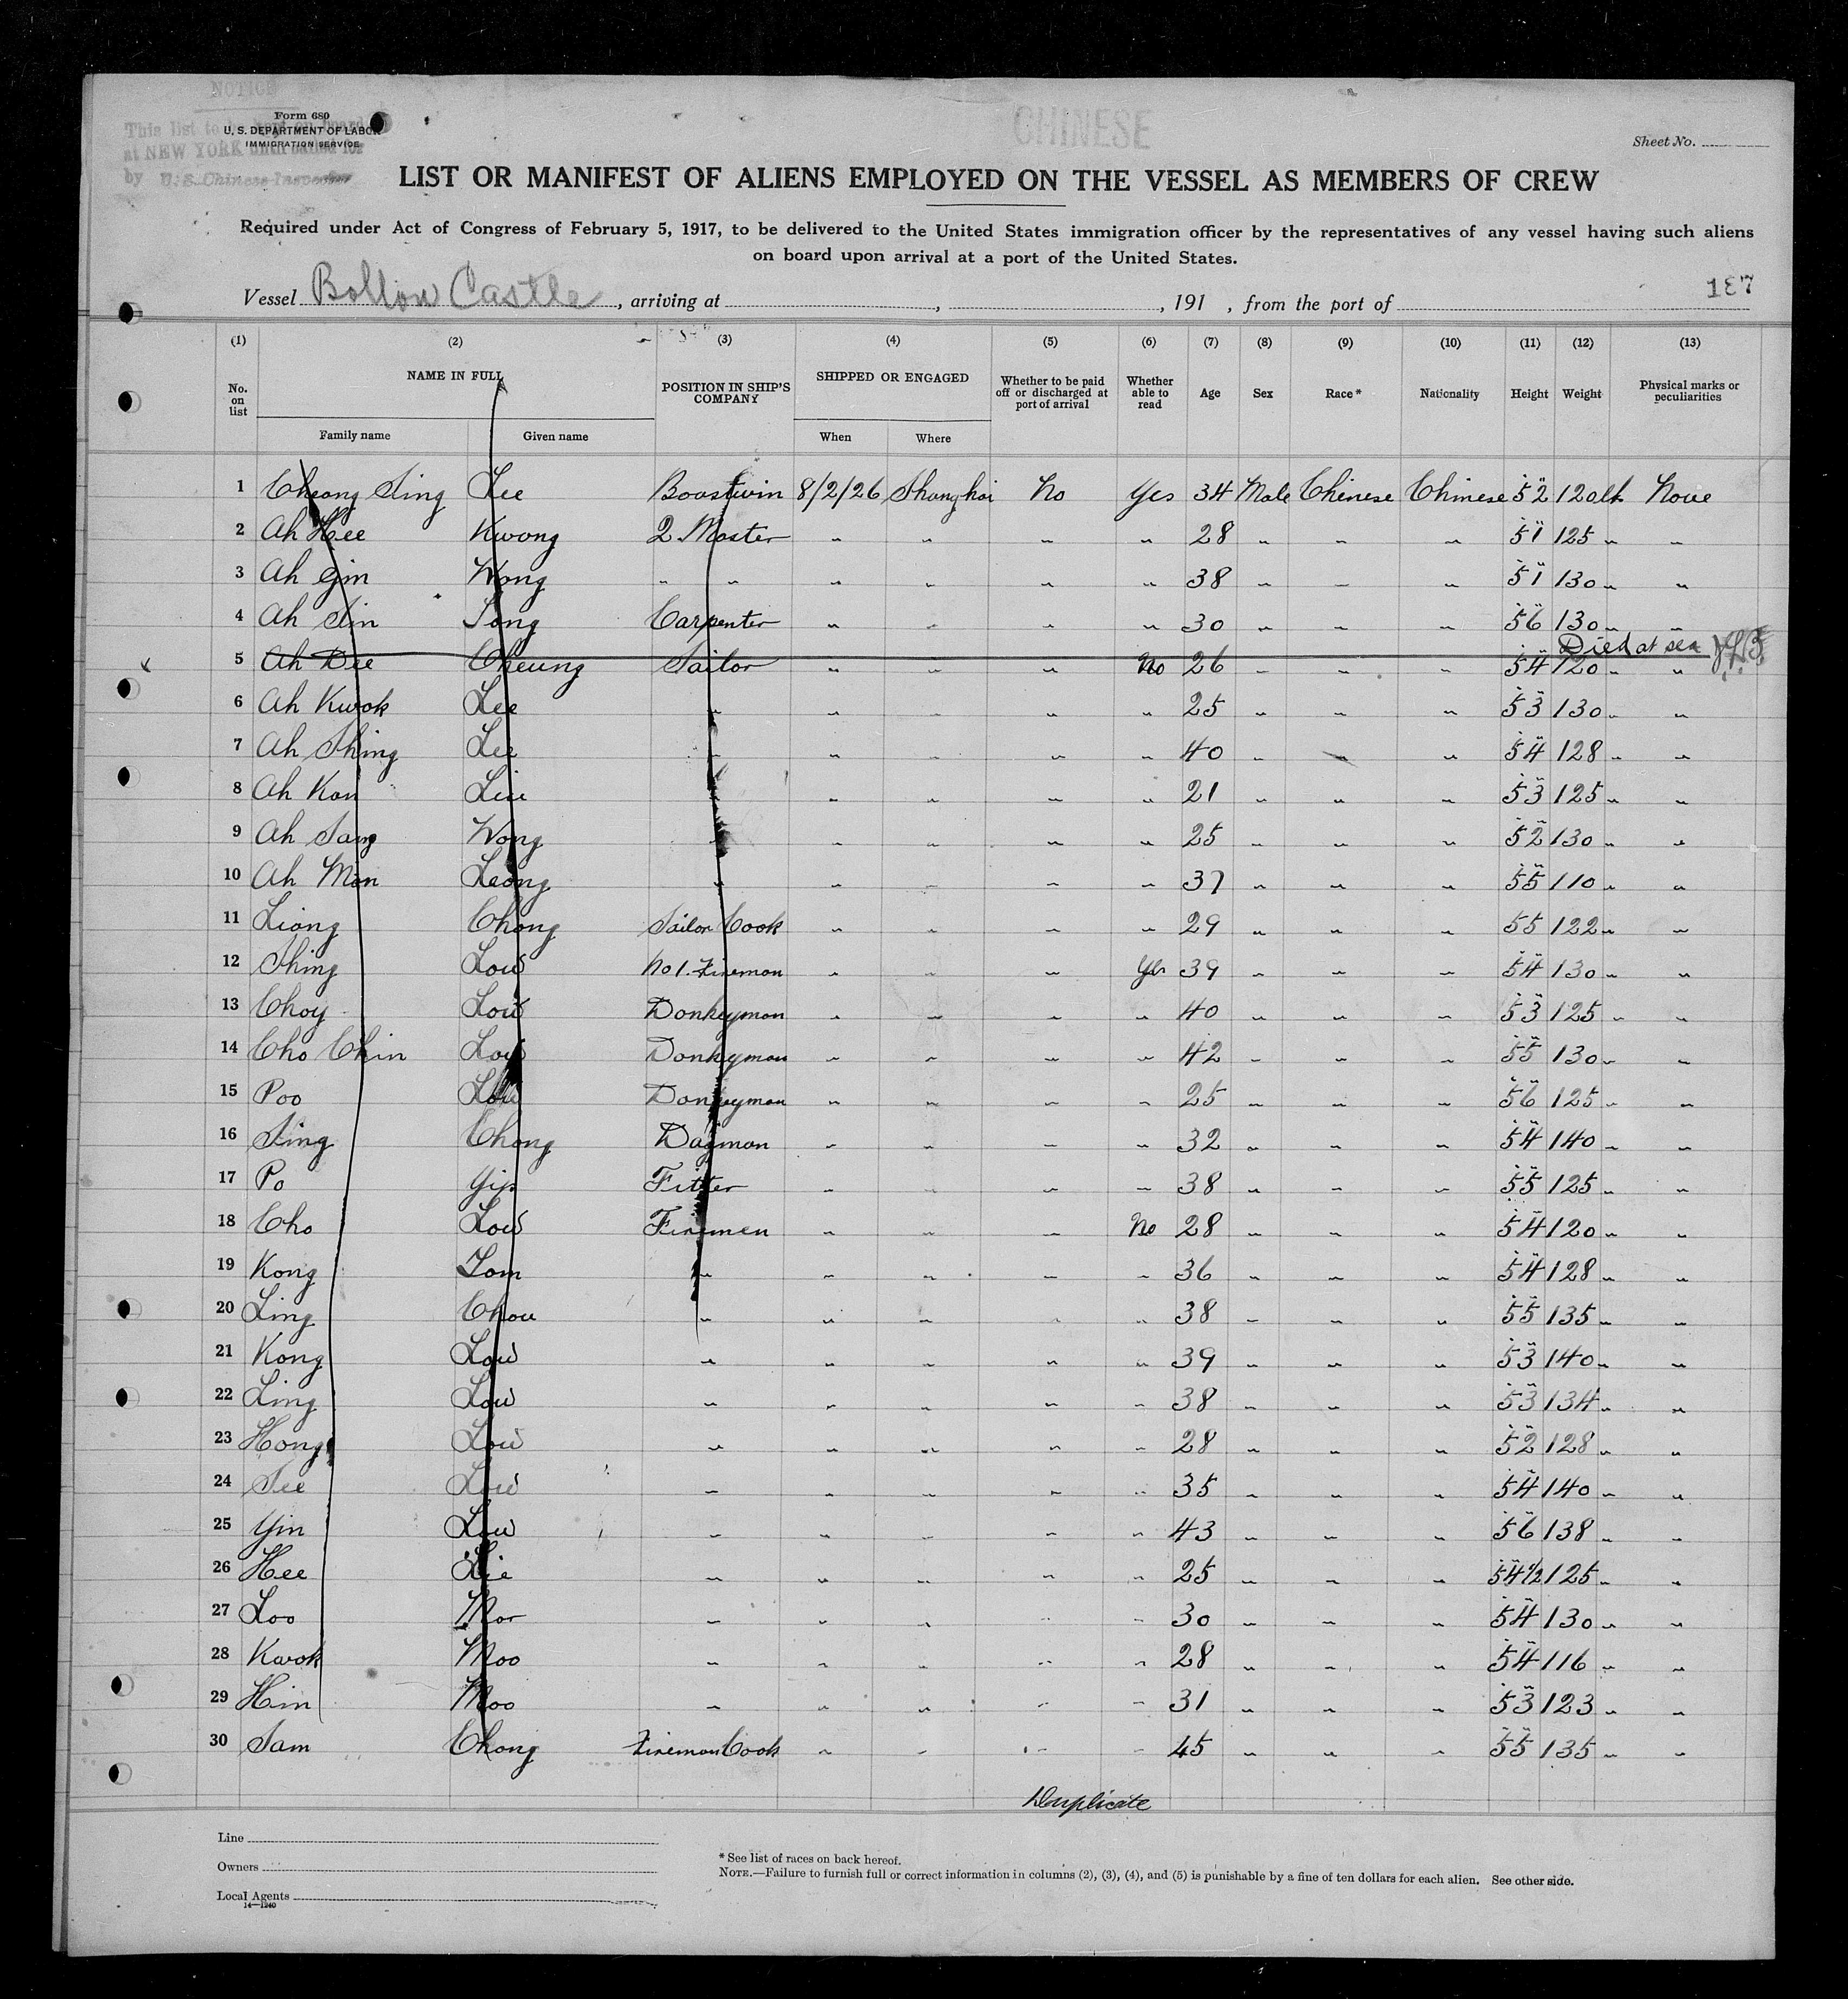 NOTICE
This list to be kept on board
at NEW YORK until called for
by U.S. Chinese Inspector
Form 680
U. S. DEPARTMENT OF LABOR
IMMIGRATION SERVICE
CHINESE
Sheet No.
LIST OR MANIFEST OF ALIENS EMPLOYED ON THE VESSEL AS MEMBERS OF CREW
Required under Act of Congress of February 5, 1917, to be delivered to the United States immigration officer by the representatives of any vessel having such aliens
on board upon arrival at a port of the United States.
187
Vessel Bolton Castle, arriving at , , 191 , from the port of
(1) (2) (3) (4) (5) (6) (7) (8) (9) (10) (11) (12) (13)
No. on list NAME IN FULL POSITION IN SHIP'S COMPANY SHIPPED OR ENGAGED Whether to be paid off or discharged at port of arrival Whether able to read Age Sex Race* Nationality Height Weight Physical marks or peculiarities
Family name Given name When Where
1 Cheong Sing Lee Boostwin 8/2/26 Shanghai No Yes 34 Male Chinese Chinese 5 2 120 lb None
2 Ah Hee Kwong 2. Master " " " " 28 " " " 5 1 125 " "
3 Ah Gin Wong " " " " " " 38 " " " 5 1 130 " "
4 Ah Sin Song Carpenter " " " " 30 " " " 5 6 130 " "
Died at sea
5 Ah Dee Cheung Sailor " " " No 26 " " " 5 4 120 " "
6 Ah Kwok Lee " " " " " 25 " " " 5 3 130 " "
7 Ah Shing Lee " " " " " 40 " " " 5 4 128 " "
8 Ah Kan Liu " " " " " 21 " " " 5 3 125 " "
9 Ah Sang Wong " " " " " 25 " " " 5 2 130 " "
10 Ah Man Leong " " " " " 37 " " " 5 5 110 " "
11 Liang Chong Sailor Cook " " " " 29 " " " 5 5 122 " "
12 Shing Low No 1. Fireman " " " Yes 39 " " " 5 4 130 " "
13 Choy Low Donkeyman " " " " 40 " " " 5 3 125 " "
14 Cho Chin Low Donkyman " " " " 42 " " " 5 5 130 " "
15 Poo Low Donkeyman " " " " 25 " " " 5 6 125 " "
16 Sing Chong Dayman " " " " 32 " " " 5 4 140 " "
17 Po Yip Fitter " " " " 38 " " " 5 5 125 " "
18 Cho Low Firemen " " " No 28 " " " 5 4 120 " "
19 Kong Tom " " " " " 36 " " " 5 4 128 " "
20 Ling Chou " " " " " 38 " " " 5 5 135 " "
21 Kong Low " " " " " 39 " " " 5 3 140 " "
22 Ling Low " " " " " 38 " " " 5 3 134 " "
23 Hong Low " " " " " 28 " " " 5 2 128 " "
24 See Low " " " " " 35 " " " 5 4 140 " "
25 Yin Low " " " " " 43 " " " 5 6 138 " "
26 Hee Lie " " " " " 25 " " " 5 4 1/2 125 " "
27 Loo Mor " " " " " 30 " " " 5 4 130 " "
28 Kwok Moo " " " " " 28 " " " 5 4 116 " "
29 Hin Moo " " " " " 31 " " " 5 3 123 " "
30 Sam Chong Fireman Cook " " " " 45 " " " 5 5 135 " "
Duplicate
Line
Owners
Local Agents
14—1240
* See list of races on back hereof.
NOTE.—Failure to furnish full or correct information in columns (2), (3), (4), and (5) is punishable by a fine of ten dollars for each alien. See other side.